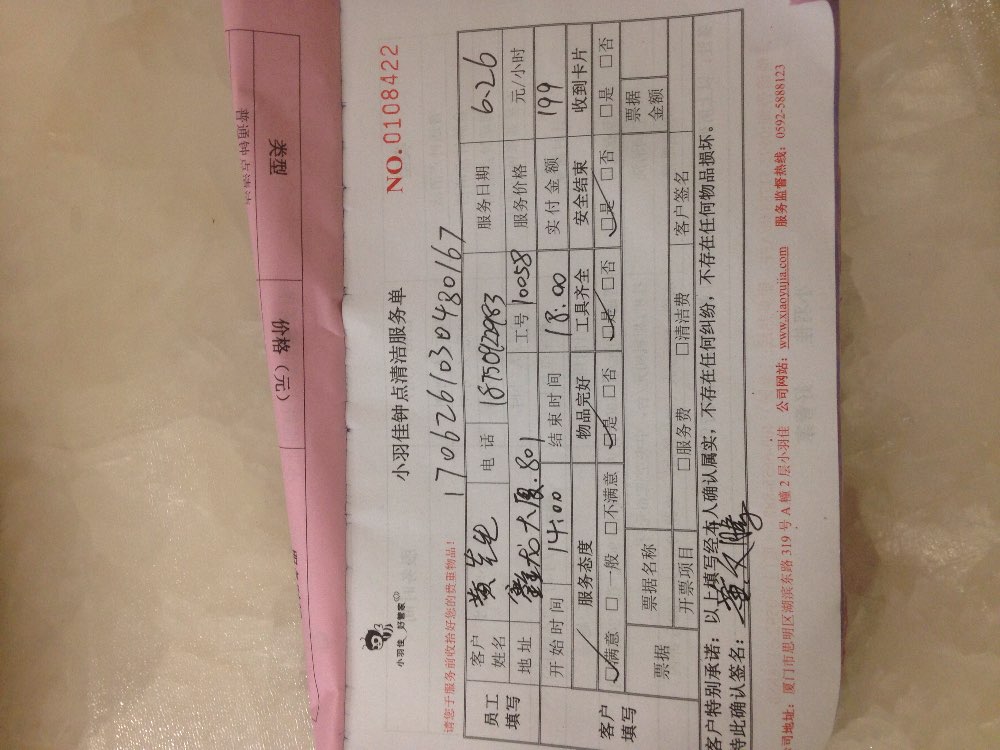 类型
价格（元）
普通钟点清洁
NO.0108422
小羽佳 好管家
小羽佳钟点清洁服务单
请您于服务前收拾好您的贵重物品！
1706261030480167
员工填写 客户姓名 黄先生 电话 18750920983 服务日期 6-26
地址 大厦.801 工号 10058 服务价格 元/小时
开始时间 14:00 结束时间 18:00 实付金额 199
客户填写 服务态度 物品完好 工具齐全 安全结束 收到卡片
☑满意 □一般 □不满意 ☑是 □否 ☑是 □否 ☑是 □否 □是 □否
票据 票据名称 票据金额
开票项目 □服务费 □清洁费 客户签名
客户特别承诺：以上填写经本人确认属实，不存在任何纠纷，不存在任何物品损坏。
特此确认签名：
司地址：厦门市思明区湖滨东路319号A幢2层小羽佳 公司网站：www.xiaoyujia.com 服务监督热线：0592-5888123